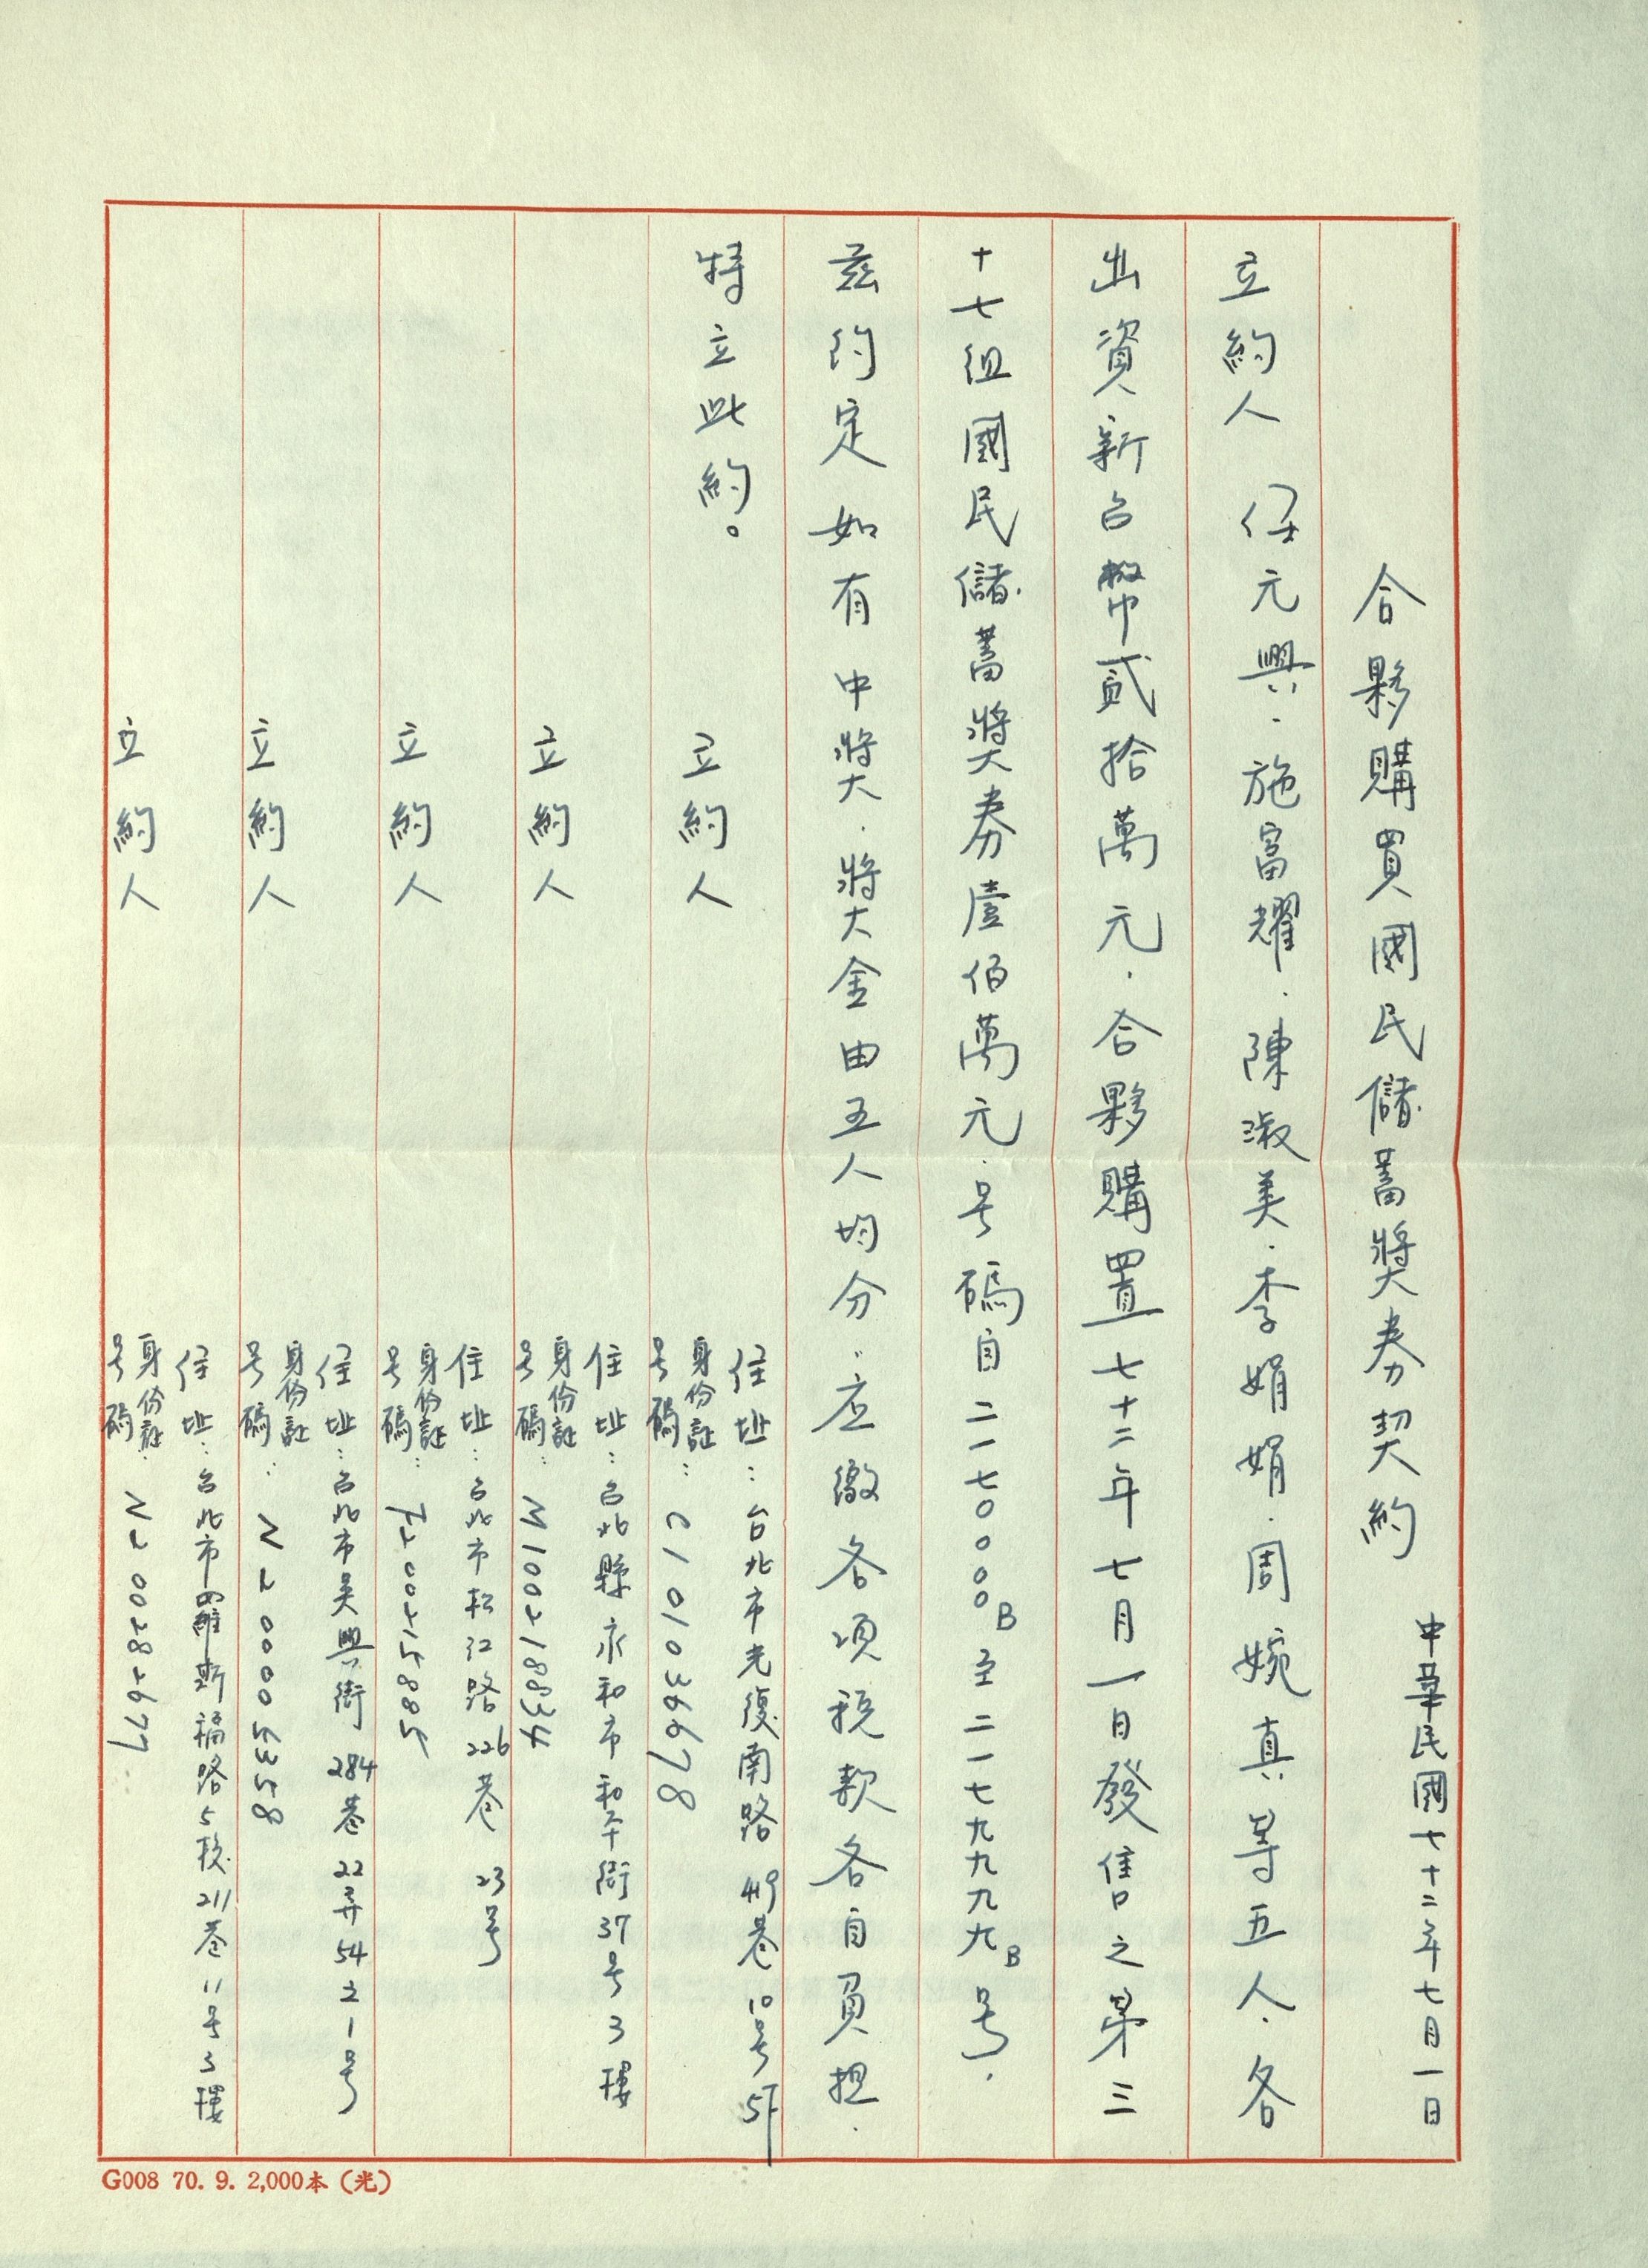 合夥購買國民儲蓄獎券契約
中華民國七十二年七月一日
立約人 任元興．施富耀．陳淑美．李娟娟．周婉真等五人．各
出資新台幣貳拾萬元．合夥購置七十二年七月一日發售之第三
十七組國民儲蓄獎券壹佰萬元．号碼自二一七〇〇〇〇B至二一七九九九九B号．
茲約定如有中獎．獎金由五人均分．应繳各項稅款各自負担．
特立此約。
立約人
住址：台北市光復南路419巷10号5F
身份証号碼：C101036678
立約人
住址：台北縣永和市和平街37号3樓
身份証号碼：M100218834
立約人
住址：台北市松江路226巷23号
身份証号碼：
立約人
住址：台北市吳興街284巷22弄54之1号
身份証号碼：
立約人
住址：台北市羅斯福路5段211巷11号3樓
身份証号碼：
G008 70. 9. 2,000本（光）